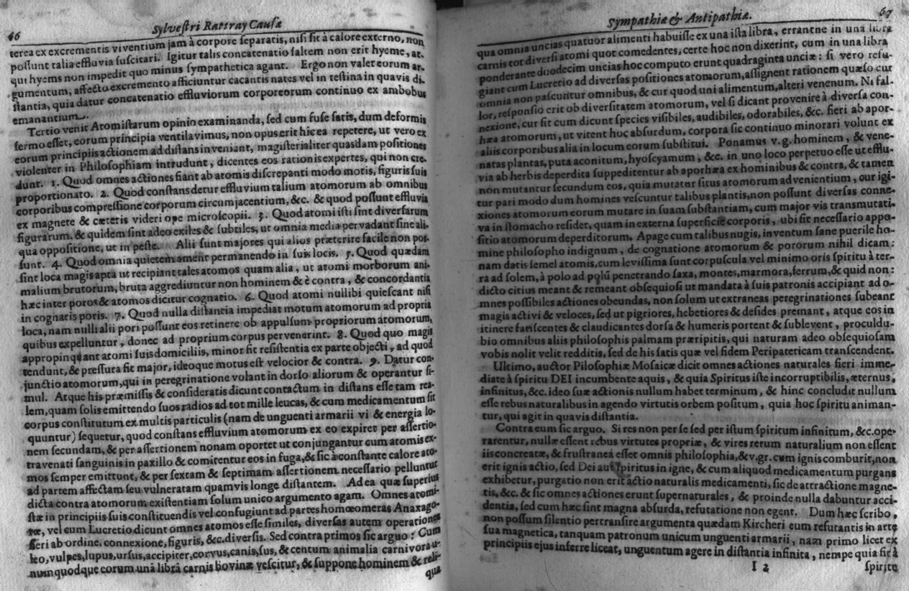 66 Sylvestri Rattray Causæ
terea ex excrementis viventium jam à corpore separatis, nisi sit à calore externo, non
possunt talia effluvia suscitari. Igitur talis concatenatio saltem non erit hyeme, at-
qui hyems non impedit quo minus sympathetica agant. Ergo non valet eorum ar-
gumentum, affecto excremento afficiuntur cacantis nates vel intestina in quavis di-
stantia, quia datur concatenatio effluviorum corporeorum continuo ex ambobus
emanantium.
Tertio venit Atomistarum opinio examinanda, sed cum fuse satis, dum de formis
sermo esset, eorum principia ventilavimus, non opus erit hic ea repetere, ut vero ex
eorum principiis actionem ad distans inveniant, magisterialiter quasdam positiones
violenter in Philosophiam intrudunt, dicentes eos rationis expertes, qui non cre-
dunt. 1. Quod omnes actiones fiant ab atomis discrepanti modo motis, figuris suis
proportionato. 2. Quod constans detur effluvium talium atomorum ab omnibus
corporibus compressione corporum circumjacentium, &c. & quod possunt effluvia
ex magnete & cæteris videri ope microscopii. 3. Quod atomi isti sint diversarum
figurarum, & quidem sint adeo exiles & subtiles, ut omnia media pervadant sine ali-
qua oppositione, ut in peste. Alii sunt majores qui alios præterire facile non pos-
sunt. 4. Quod omnia quietem ament permanendo in suis locis. 5. Quod quædam
sint loca magis apta ut recipiant tales atomos quam alia, ut atomi morborum ani-
malium brutorum, bruta aggrediuntur non hominem & è contra, & concordantia
hæc inter poros & atomos dicitur cognatio. 6. Quod atomi nullibi quiescant nisi
in cognatis poris. 7. Quod nulla distantia impediat motum atomorum ad propria
loca, nam nulli alii pori possunt eos retinere ob appulsum propriorum atomorum,
quibus expelluntur, donec ad proprium corpus pervenerint. 8. Quod quo magis
appropinquant atomi suis domiciliis, minor sit resistentia ex parte objecti, ad quod
tendunt, & pressura sit major, ideoque motus est velocior & contra. 9. Datur con-
junctio atomorum, qui in peregrinatione volant in dorso aliorum & operantur si-
mul. Atque his præmissis & consideratis dicunt contactum in distans esse tam rea-
lem, quam solis emittendo suos radios ad tot mille leucas, & cum medicamentum sit
corpus constitutum ex multis particulis (nam de unguenti armarii vi & energia lo-
quuntur) sequetur, quod constans effluvium atomorum ex eo expiret per assertio-
nem secundam, & per assertionem nonam oportet ut conjungantur cum atomis ex-
travenati sanguinis in paxillo & comitentur eos in fuga, & sic à constante calore ato-
mos semper emittunt, & per sextam & septimam assertionem necessario pelluntur
ad partem affectam seu vulneratam quamvis longe distantem. Ad ea quæ superius
dicta contra atomorum existentiam solum unico argumento agam. Omnes atomi-
stæ in principiis suis constituendis vel confugiunt ad partes homœomeras Anaxago-
ræ, vel cum Lucretio dicunt omnes atomos esse similes, diversas autem operationes
fieri ab ordine, connexione, figuris, &c. diversis. Sed contra primos sic arguo: Cum
leo, vulpes, lupus, ursus, accipiter, corvus, canis, sus, & centum animalia carnivora u-
numquodque eorum una libra carnis bovinæ vescitur, & suppone hominem & reli-
qua
Sympathiæ & Antipathiæ. 67
qua omnia uncias quatuor alimenti habuisse ex una ista libra, errantne in una libra
carnis tot diversi atomi quot comedentes, certe hoc non dixerint, cum in una libra
ponderante duodecim uncias hoc computo erunt quadraginta unciæ: si vero refu-
giant cum Lucretio ad diversas positiones atomorum, assignent rationem quæso cur
omnia non pascuntur omnibus, & cur quod uni alimentum, alteri venenum. Ni fal-
lor, responsio erit ob diversitatem atomorum, vel si dicant provenire à diversa con-
nexione, cur sit cum dicunt species visibiles, audibiles, odorabiles, &c. fieri ab apor-
hæa atomorum, ut vitent hoc absurdum, corpora sic continuo minorari volunt ex
aliis corporibus alia in locum eorum substitui. Ponamus v.g. hominem, & vene-
natas plantas, puta aconitum, hyoscyamum, &c. in uno loco perpetuo esse ut efflu-
via ab herbis deperdita suppeditentur ab aporhæa ex hominibus & contra, & tamen
non mutantur secundum eos, quia mutatur situs atomorum advenientium, our igi-
tur pari modo dum homines vescuntur talibus plantis, non possunt diversas conne-
xiones atomorum eorum mutare in suam substantiam, cum major vis transmutati-
va in stomacho resider, quam in externa superficie corporis, ubi sit necessario appo-
sitio atomorum deperditorum. Apage cum talibus nugis, inventum sane puerile ho-
mine philosopho indignum, de cognatione atomorum & pororum nihil dicam:
nam datis semel atomis, cum levissima sunt corpuscula vel minimo oris spiritu à ter-
ra ad solem, à polo ad polum penetrando saxa, montes, marmora, ferrum, & quid non:
dicto citius meant & remeant obsequiosi ut mandata à suis patronis accipiant ad o-
mnes possibiles actiones obeundas, non solum ut extraneas peregrinationes subeant
magis activi & veloces, sed ut pigriores, hebetiores & desides premant, atque eos in
itinere fatiscentes & claudicantes dorsa & humeris portent & sublevent, proculdu-
bio omnibus aliis philosophis palmam præripitis, qui naturam adeo obsequiosam
vobis nolit velit redditis, sed de his satis quæ vel fidem Peripateticam transcendent.
Ultimo, auctor Pilosophiæ Mosaicæ dicit omnes actiones naturales fieri imme-
diate à spiritu DEI incumbente aquis, & quia Spiritus iste incorruptibilis, æternus,
infinitus, &c. ideo suæ actionis nullum habet terminum, & hinc concludit nullum
esse rebus naturalibus in agendo virtutis orbem positum, quia hoc spiritu animan-
tur, qui agit in quavis distantia.
Contra eum sic arguo. Si res non per se sed per istum spiritum infinitum, &c. ope-
rarentur, nullæ essent rebus virtutes propriæ, & vires rerum naturalium non essent
iis concreatæ, & frustranea esset omnis philosophia, & v.gr. cum ignis comburit, non
erit ignis actio, sed Dei aut spiritus in igne, & cum aliquod medicamentum purgans
exhibetur, purgatio non erit actio naturalis medicamenti, sic de attractione magne-
tis, &c. & sic omnes actiones erunt supernaturales, & proinde nulla dabuntur acci-
dentia, sed cum hæc sint magna absurda, refutatione non egent. Dum hæc scribo,
non possum silentio pertransire argumenta quædam Kircheri eum refutantis in arte
sua magnetica, tanquam patronum unicum unguenti armarii, nam primo licet ex
principiis ejus inferre liceat, unguentum agere in distantia infinita, nempe quia sit à
I 2 spiritu